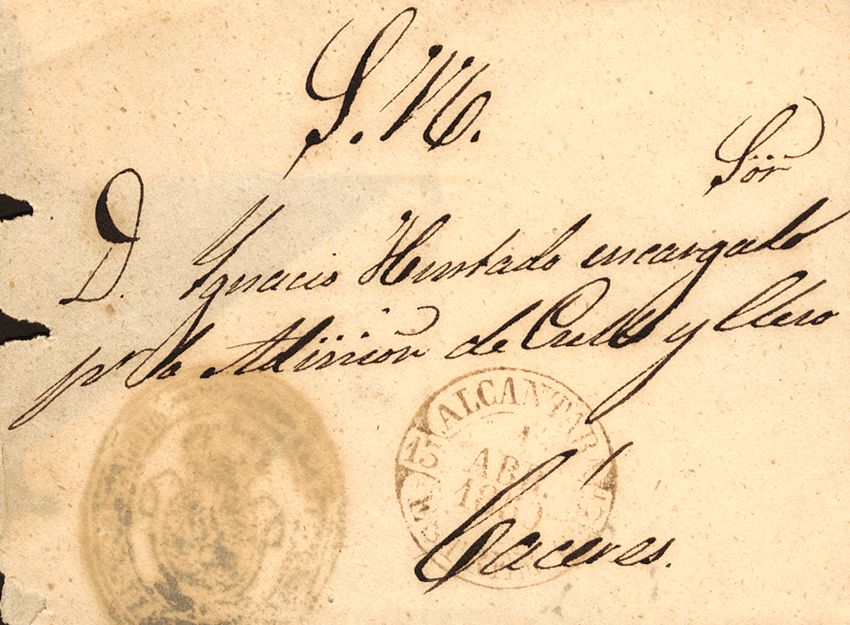 S. N.
Sör
D. Ygnacio Hurtado encargado
pr la Admon de Culto y Clero
ALCANTARA
1
ABR
1860
Cáceres.